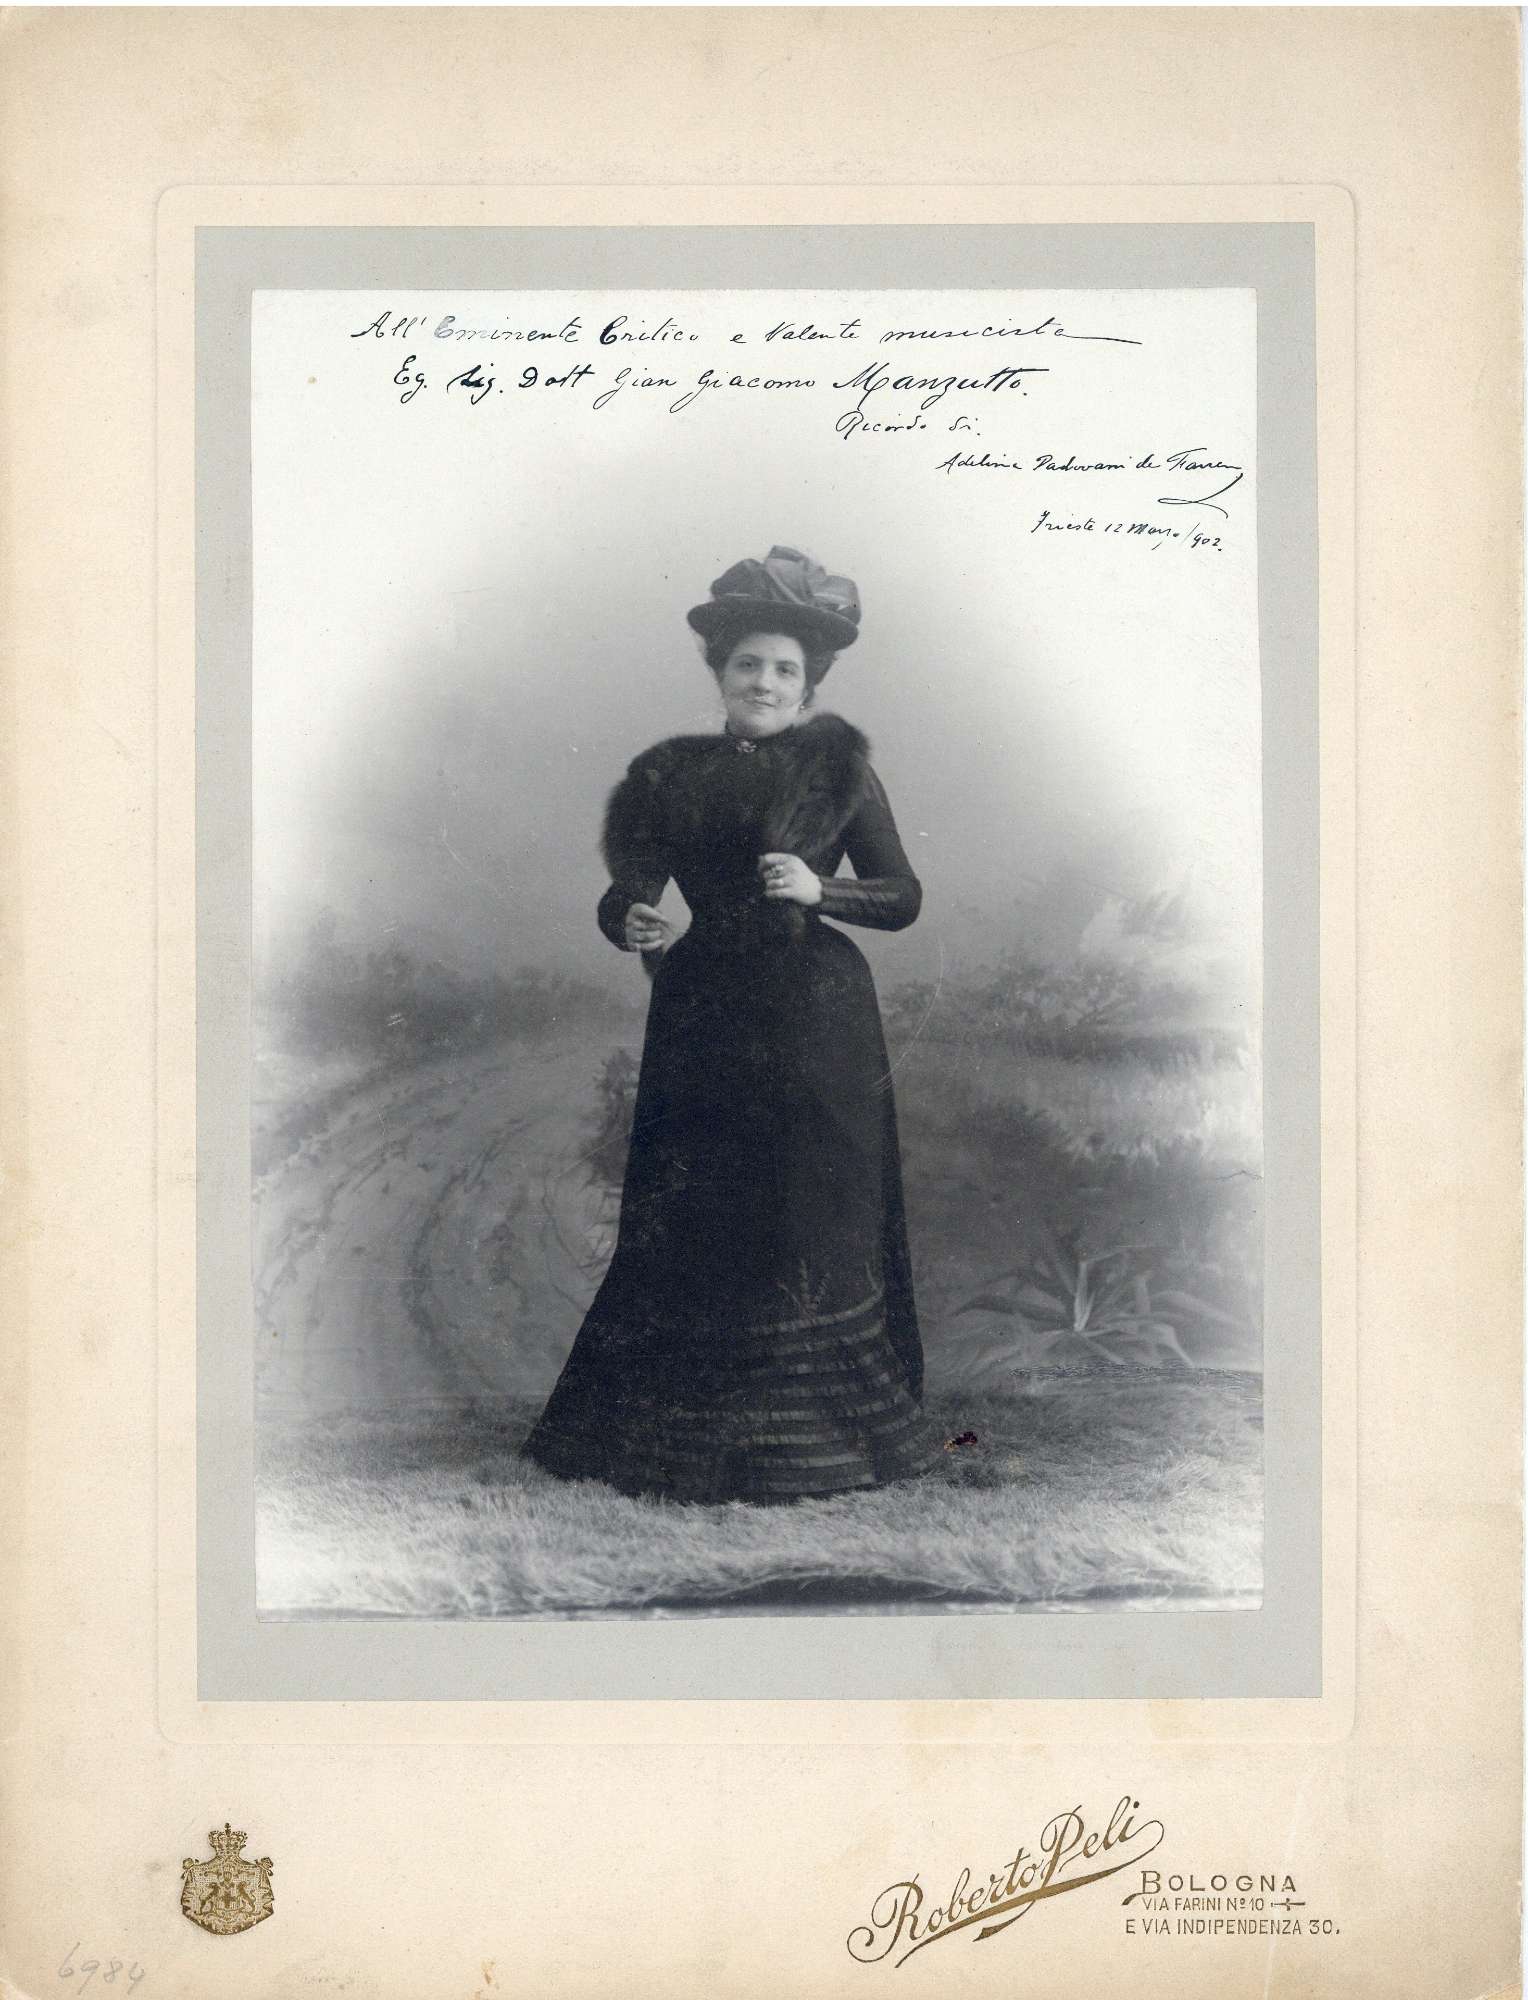 All' Eminente Critico e Valente musicista
Eg. Sig. Dott Gian Giacomo Manzutto.
Ricordo di.
Adelina Padovani de Farren
Trieste 12 Marzo/902.
Roberto Peli
BOLOGNA
VIA FARINI Nº 10
E VIA INDIPENDENZA 30.
6984